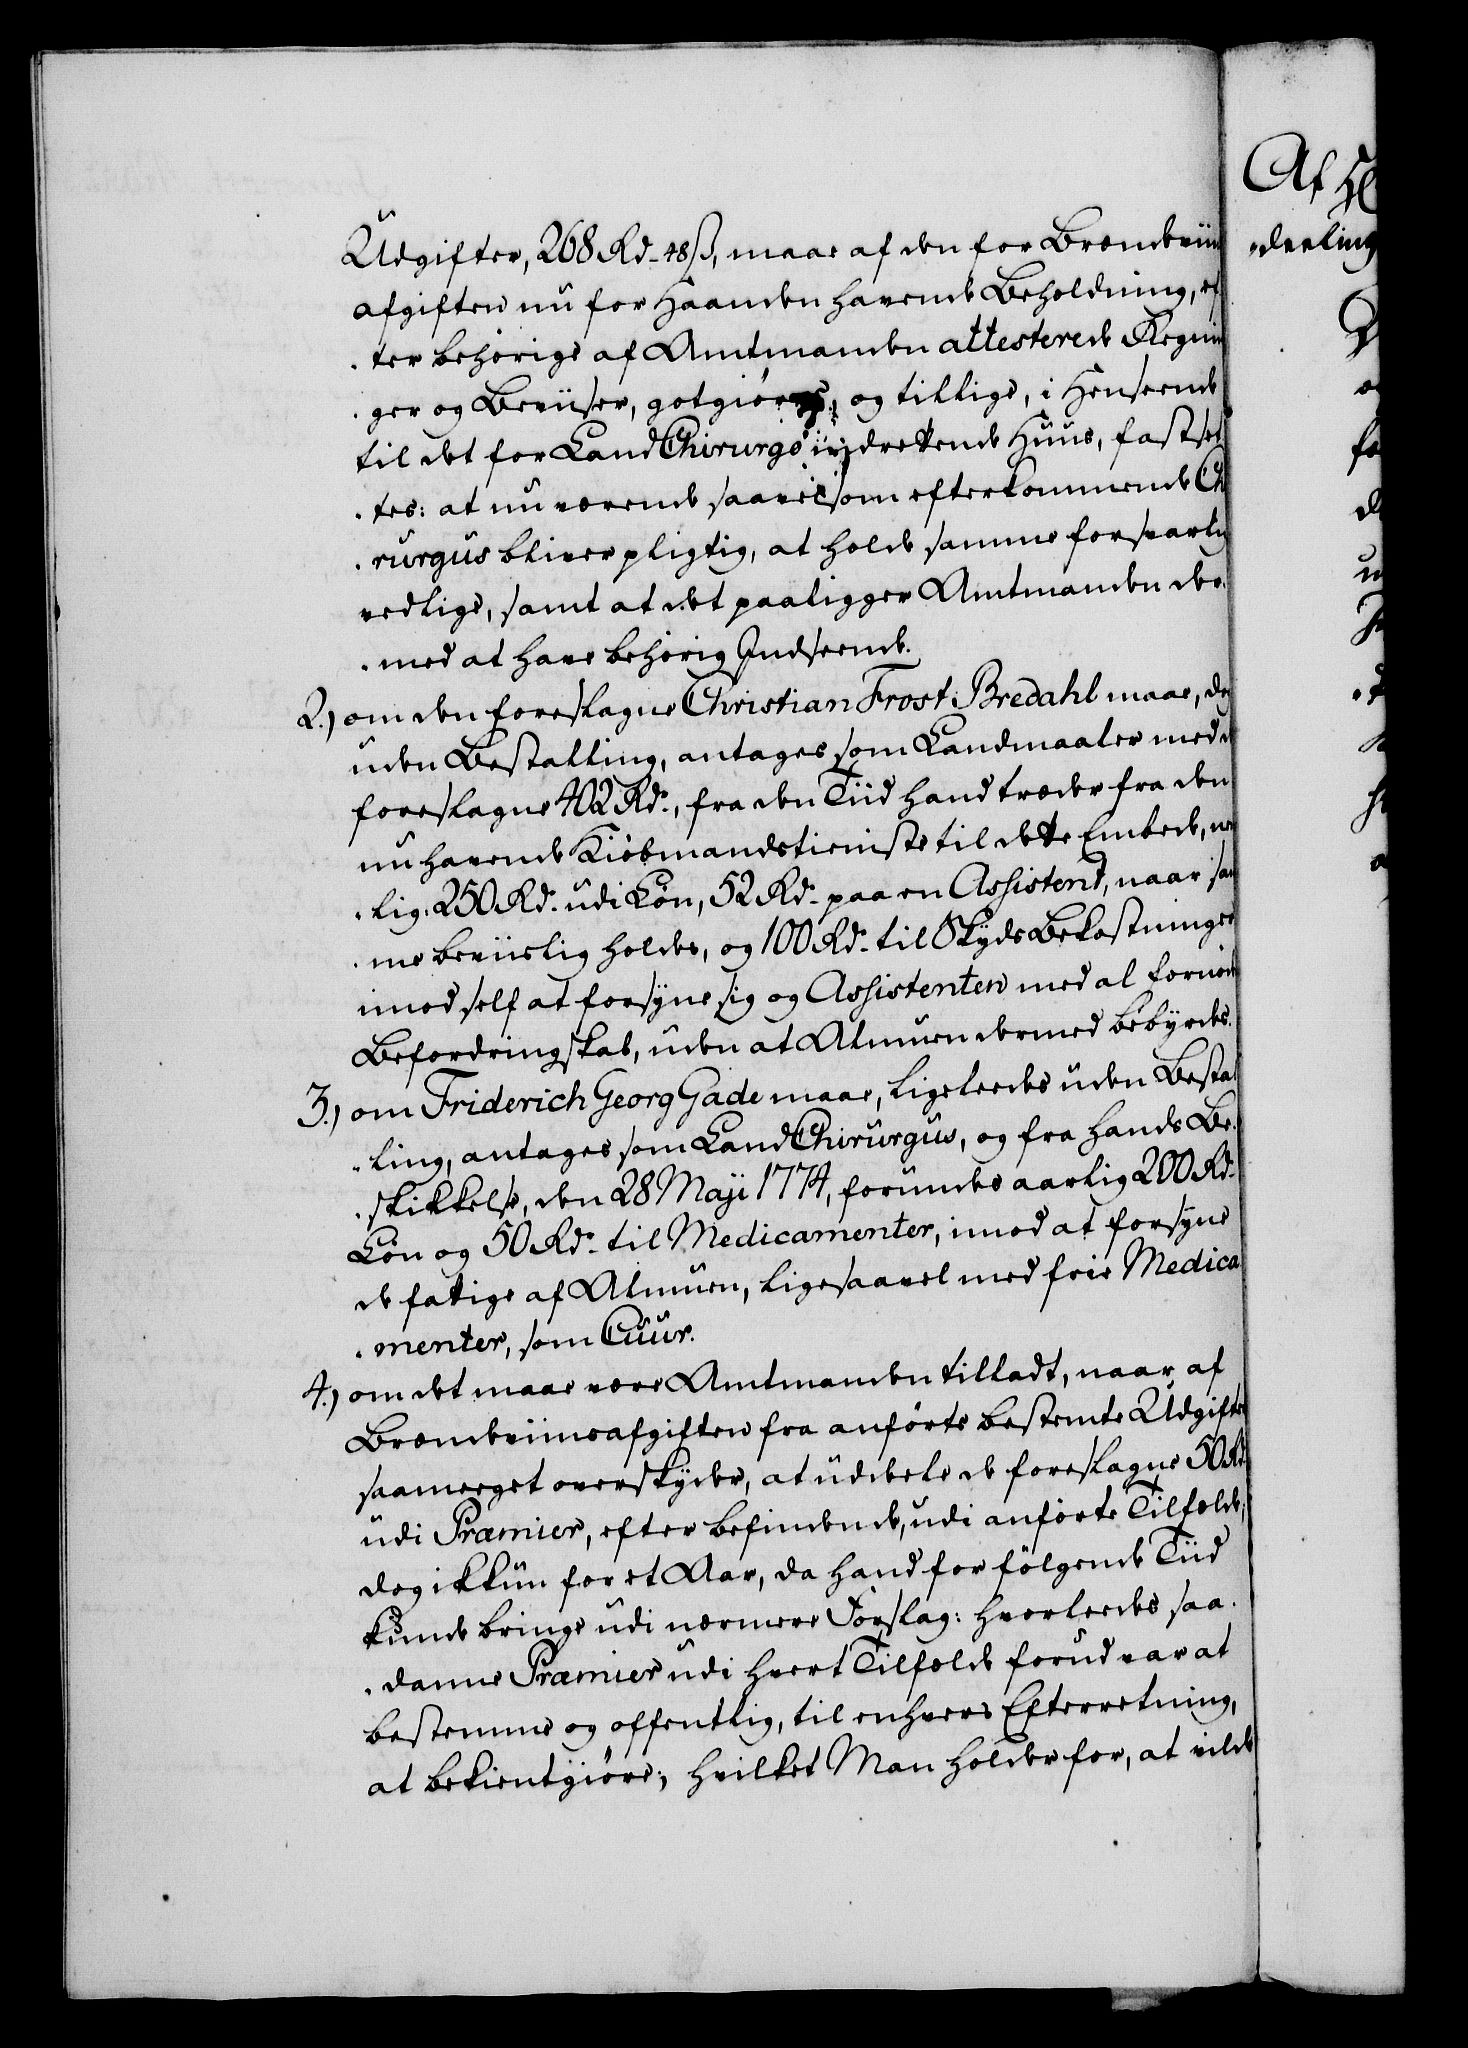 Udgifter, 268 Rd. 48 ß, maae af den for Brændeviin
afgiften nu for Haanden havende Beholdning, ef
ter behørige af Amtmanden attesterede Regnin
ger og Beviiser, gotgiøres, og tillige, i Henseende
til det for Land Chirurgo indrettende Huus, fastset
tes: at nu værende saavelsom efterkommende Ch
rurgus bliver pligtig, at holde samme forsvarlig
vedlige, samt at det paaligger Amtmanden der
med at have behørig Indseende.
2.) om den foreslagne Christian Frost Bredahl maae, dog
uden Bestalling, antages som Landmaaler med d
foreslagne 402 Rd., fra den Tiid hand træder fra den
nu havende Kiøbmandstieniste til dette Embede, nem
lig: 250 Rd. udi Løn, 52 Rd. paa en Assistent, naar sam
me beviislig holdes, og 100 Rd. til Skyds Bekostninger
imod self at forsyne sig og Assistenten med al fornøde
Befordringskab, uden at Almuen dermed bebyrdes.
3.) om Friderich Georg Gade maae, ligeleedes uden Bestal
ling, antages som Land Chirurgus, og fra hands Be
skikkelse, den 28 Maji 1774, forundes aarlig 200 Rd.
Løn og 50 Rd. til Medicamenter, imod at forsyne
de fattige af Almuen, ligesaavel med frie Medica
menter, som Cuur.
4.) om det maae være Amtmanden tilladt, naar af
Brændeviinsafgiften fra anførte bestemte Udgifter
saameeget overskyder, at uddeele de foreslagne 50 Rd
udi Præmier, efter befindende, udi anførte Tilfælde,
dog ikkun for et Aar, da hand for følgende Tiid
kunde bringe udi nærmere Forslag: hvorleedes saa
danne Præmier udi hvert Tilfælde forud var at
bestemme og offentlig, til enhvers Efterretning,
at bekientgiøre; hvilket Man holder for, at vilde
Af
deeling